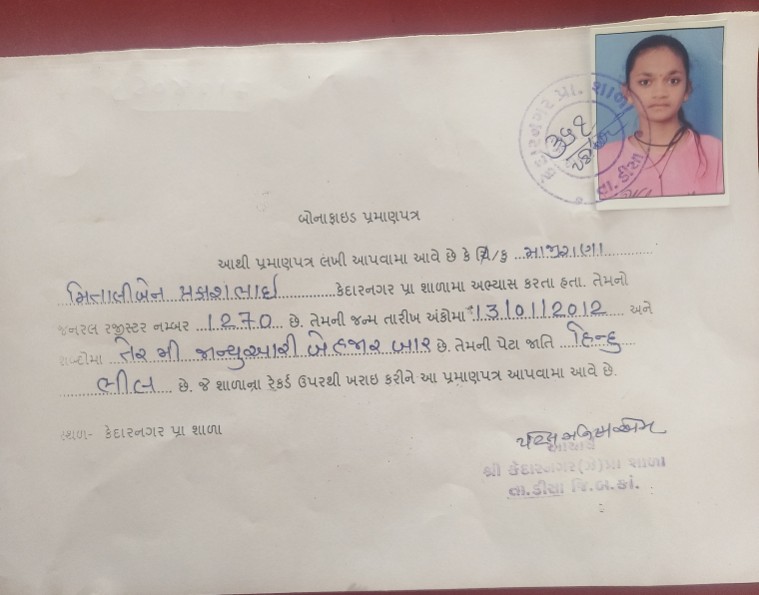 કેદારનગર પ્રા. શાળા
તા. ડીસા
બોનાફાઇડ પ્રમાણપત્ર
આથી પ્રમાણપત્ર લખી આપવામા આવે છે કે ચિ/કુ માજીરાણા
મિતાલીબેન પ્રકાશભાઇ કેદારનગર પ્રા શાળામા અભ્યાસ કરતા હતા. તેમનો
જનરલ રજીસ્ટર નમ્બર 1270 છે. તેમની જન્મ તારીખ અંકોમા 13/01/2012 અને
શબ્દોમા તેર મી જાન્યુઆરી બેહજાર બાર છે. તેમની પેટા જાતિ હિન્દુ
ભીલ છે. જે શાળાના રેકર્ડ ઉપરથી ખરાઇ કરીને આ પ્રમાણપત્ર આપવામા આવે છે.
સ્થળ- કેદારનગર પ્રા શાળા
આચાર્ય
શ્રી કેદારનગર(ઝે)પ્રા શાળા
તા.ડીસા જિ.બ.કાં.